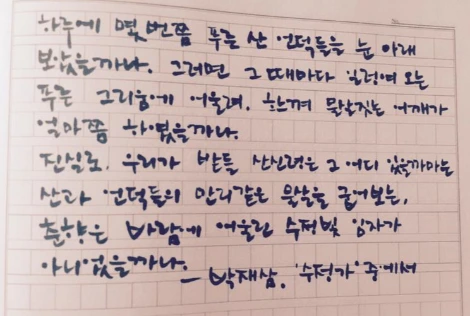 하루에 몇번쯤 푸른 산 언덕들을 눈 아래
보았을까나. 그러면 그 때마다 일렁여 오는
푸른 그리움에 어울려, 흐느껴 물살짓는 어깨가
얼마쯤 하였을까나.
진실로, 우리가 받들 산신령은 그 어디 있을까마는
산과 언덕들의 만리같은 물살을 굽어보는,
춘향은 바람에 어울린 수정빛 임자가
아니었을까나.
- 박재삼. '수정가' 중에서